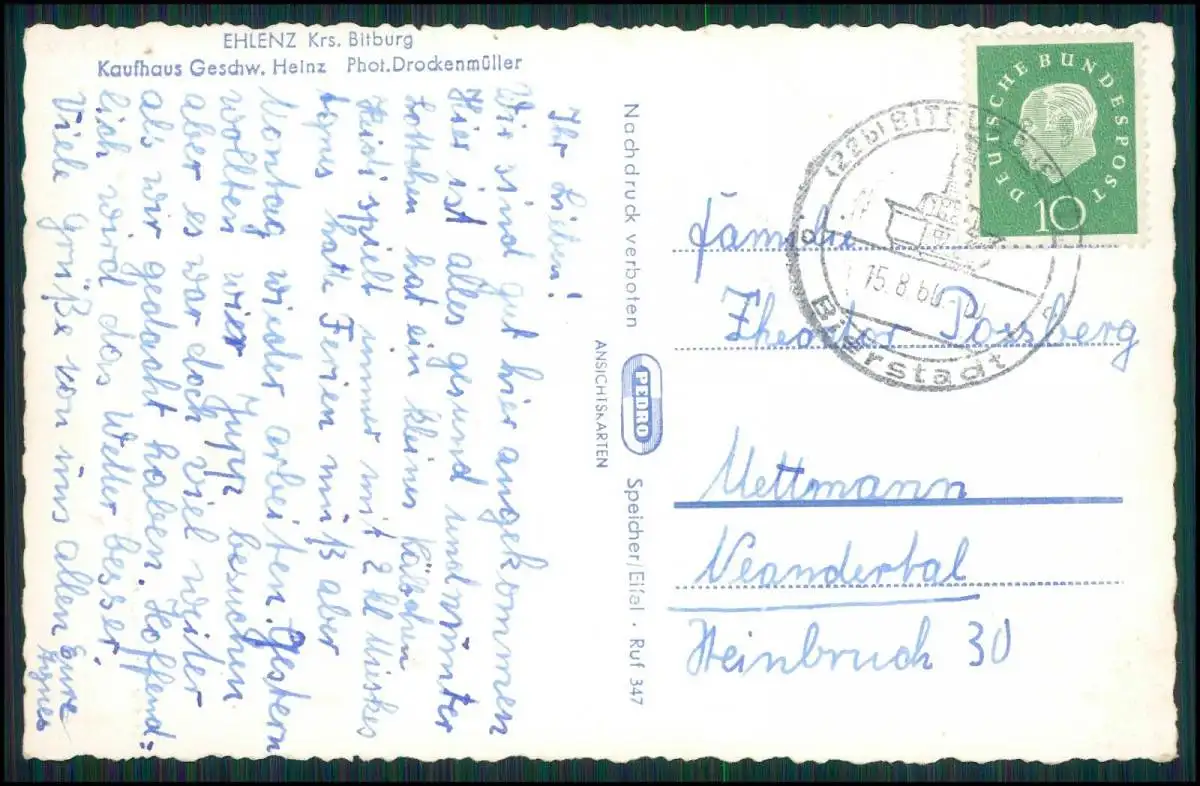 EHLENZ Krs. Bitburg
Kaufhaus Geschw. Heinz Phot. Drockenmüller
Ihr Lieben!
Wir sind gut hier angekommen
Hier ist alles gesund und munter
Lottchen hat ein kleines Kälbchen
Heidi spielt immer mit 2 kl Mieskes
Agnes hatte Ferien muß aber
Montag wieder arbeiten. Gestern
wollten wier Jupp besuchen
aber es war doch viel weiter
als wir gedacht haben. Hoffend=
lich wird das Wetter besser
Viele Grüße von uns allen Eure
Agnes
Nachdruck verboten
PEDRO
ANSICHTSKARTEN
Speicher/Eifel · Ruf 347
DEUTSCHE BUNDESPOST
10
(22b) BITBURG
15.8.60
Bierstadt
Familie
Theodor Possberg
Mettmann
Neandertal
Steinbruch 30